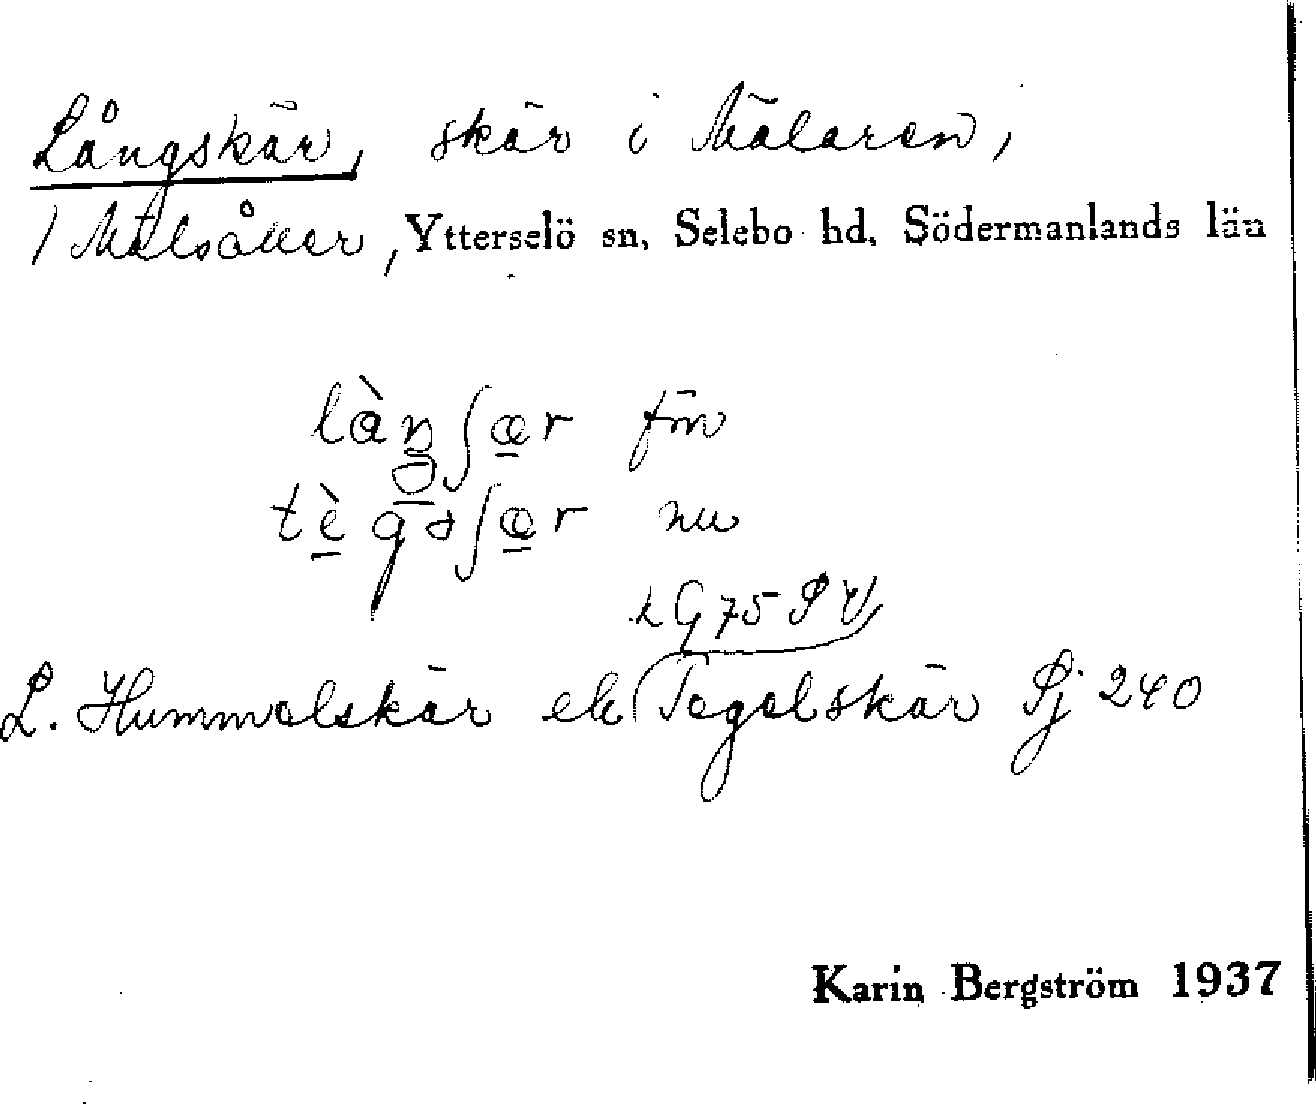 Långskär, skär i Mälaren,
/ Mälsåker, Ytterselö sn, Selebo hd, Södermanlands län
fm
nu
G 75
L. Hummelskär el. Tegelskär Sj 240
Karin Bergström 1937